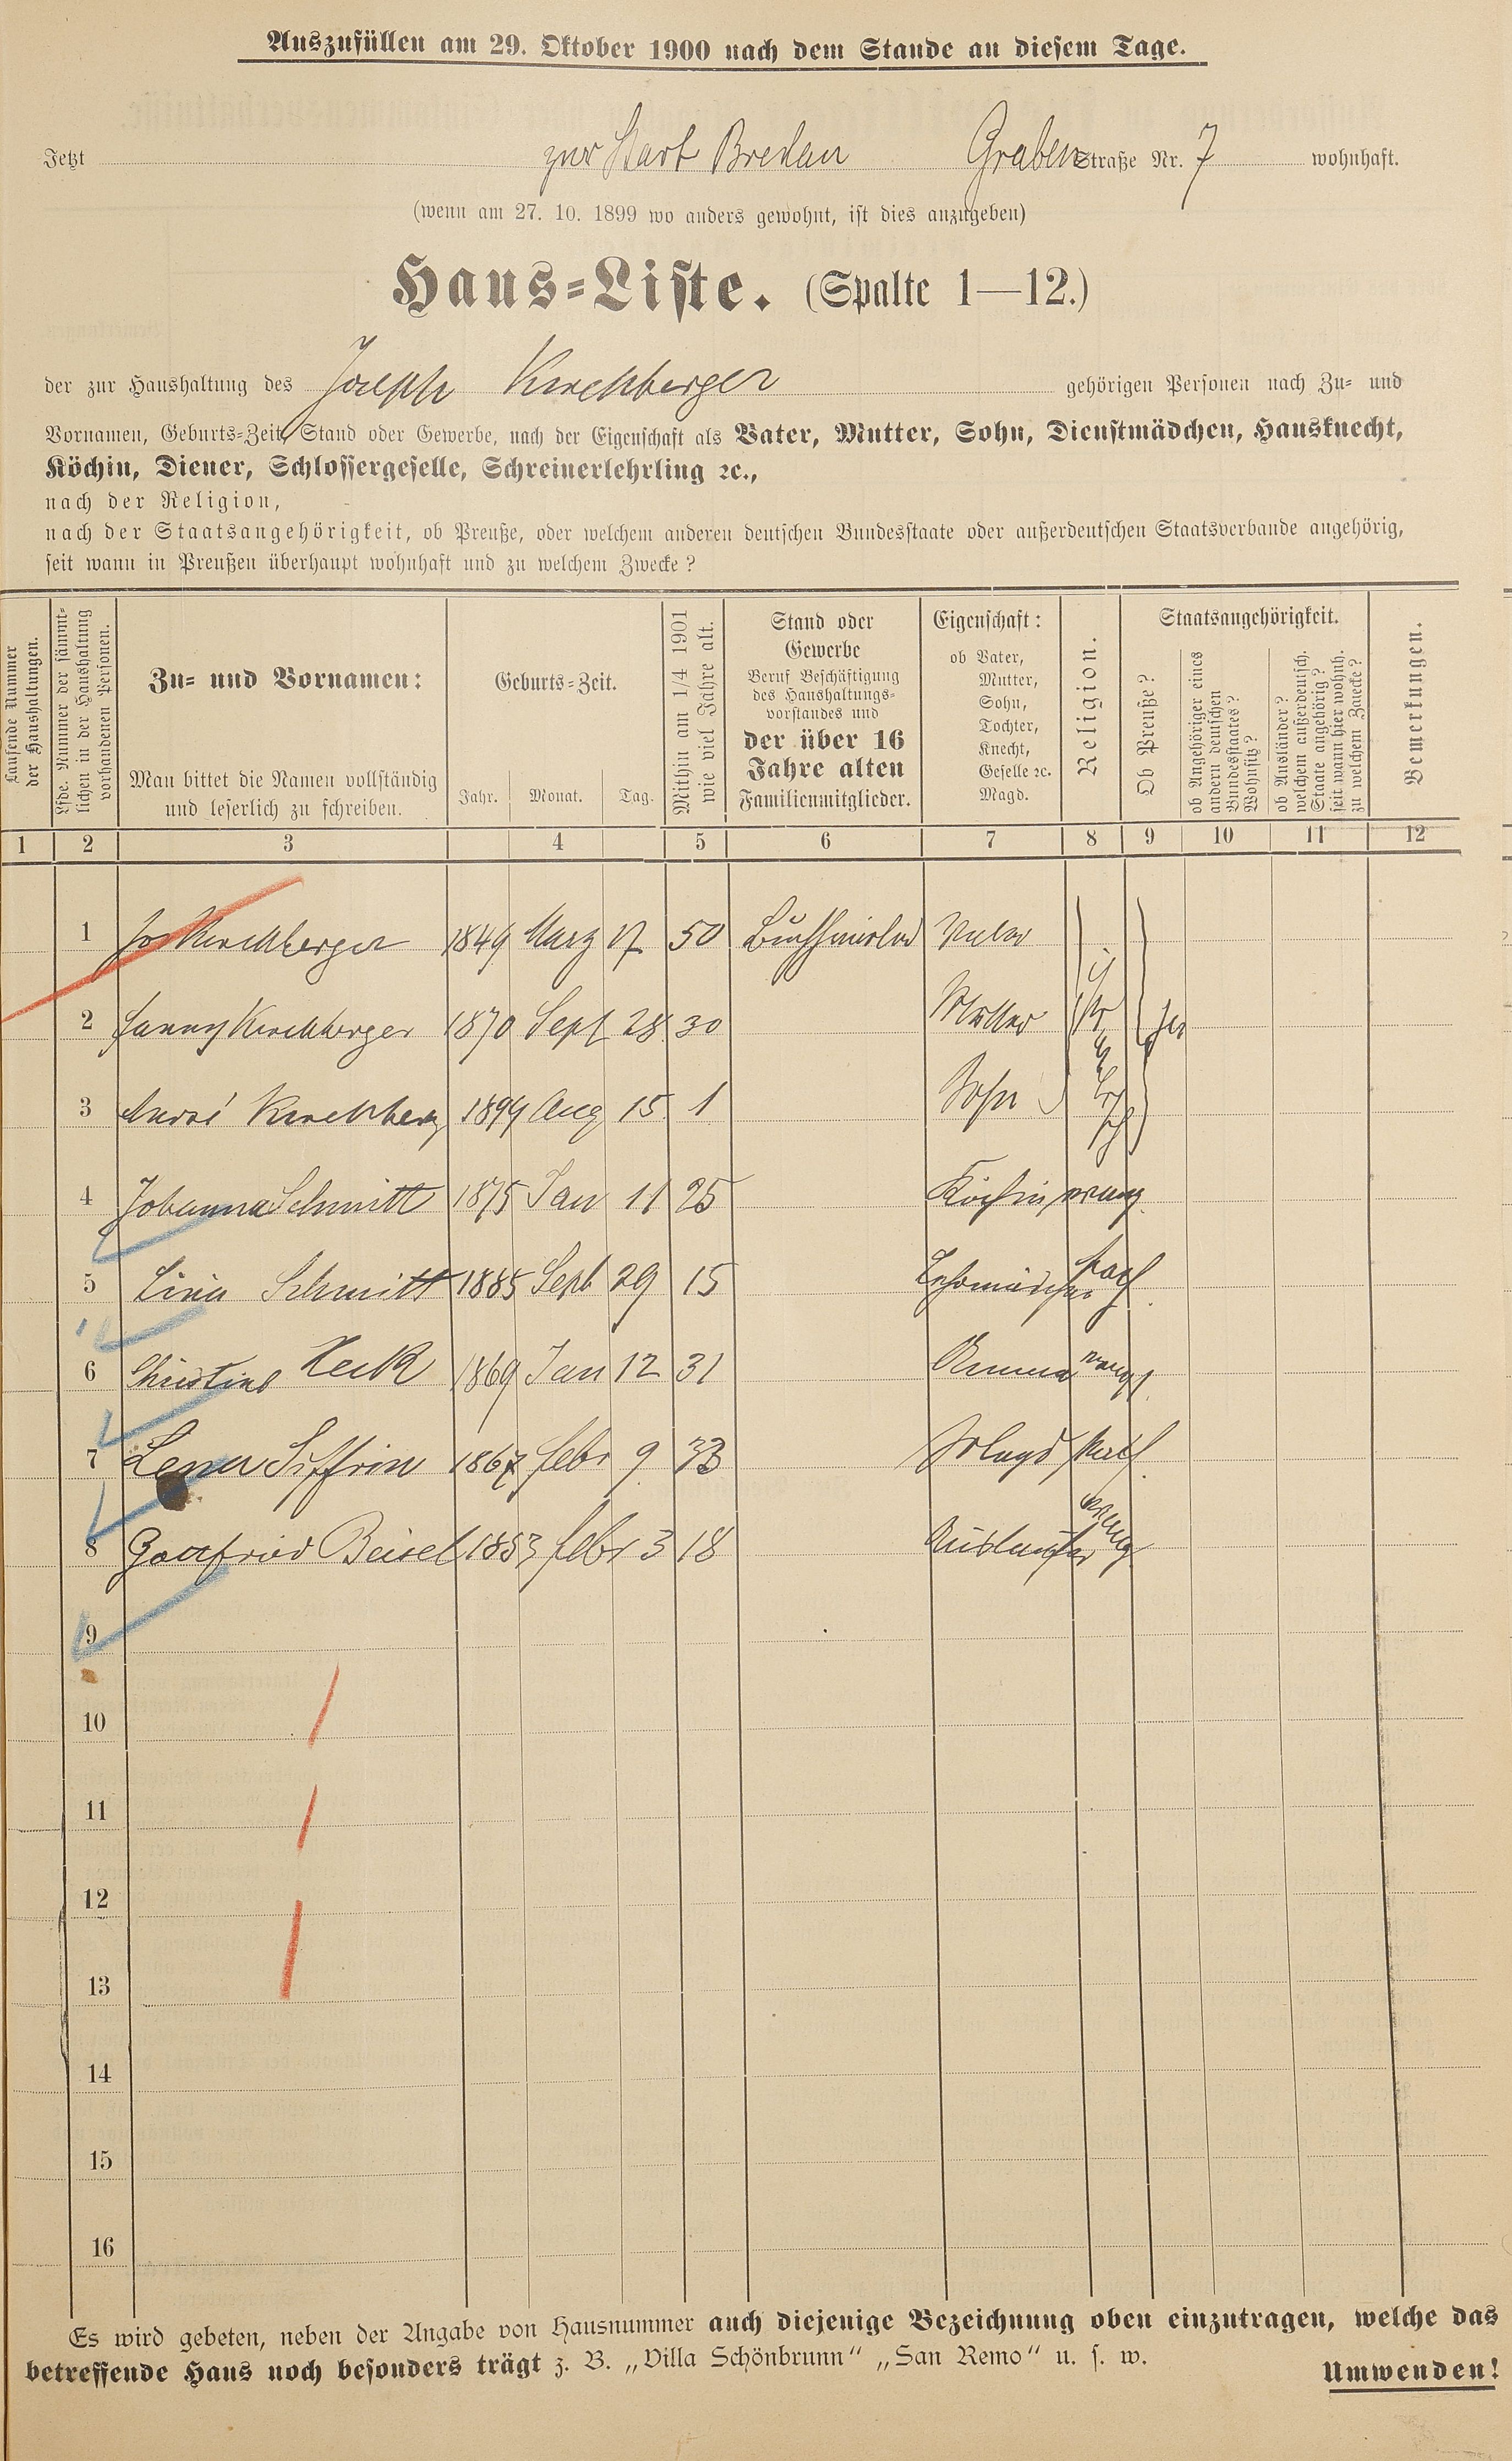 Auszufüllen am 29. Oktober 1900 nach dem Stande an diesem Tage.
Jetzt zur Stadt Bredau Graben Straße Nr. 7 wohnhaft.
(wenn am 27. 10. 1899 wo anders gewohnt, ist dies anzugeben)
Haus-Liste. (Spalte 1—12.)
der zur Haushaltung des Joseph Kirchberger gehörigen Personen nach Zu- und
Vornamen, Geburts-Zeit, Stand oder Gewerbe, nach der Eigenschaft als Vater, Mutter, Sohn, Dienstmädchen, Hausknecht,
Köchin, Diener, Schlossergeselle, Schreinerlehrling ꝛc.,
nach der Religion,
nach der Staatsangehörigkeit, ob Preuße, oder welchem anderen deutschen Bundesstaate oder außerdeutschen Staatsverbande angehörig,
seit wann in Preußen überhaupt wohnhaft und zu welchem Zwecke?
Laufende Nummer
der Haushaltungen.
Lfde. Nummer der sämmt-
lichen in der Haushaltung
vorhandenen Personen.
Zu- und Vornamen:
Man bittet die Namen vollständig
und leserlich zu schreiben.
Geburts-Zeit.
Jahr. Monat. Tag.
Mithin am 1/4 1901
wie viel Jahre alt.
Stand oder
Gewerbe
Beruf Beschäftigung
des Haushaltungs-
vorstandes und
der über 16
Jahre alten
Familienmitglieder.
Eigenschaft:
ob Vater,
Mutter,
Sohn,
Tochter,
Knecht,
Geselle ꝛc.
Magd.
Religion.
Staatsangehörigkeit.
Ob Preuße?
ob Angehöriger eines
andern deutschen
Bundesstaates?
Wohnsitz?
ob Ausländer?
welchem außerdeutsch.
Staate angehörig?
seit wann hier wohnh.
zu welchem Zwecke?
Bemerkungen.
1 2 3 4 5 6 7 8 9 10 11 12
1 Jos Kirchberger 1849 Marz 17 50 Buchhändler Vater
2 Fanny Kirchberger 1870 Sept 28 30 Mutter isr ja
3 André Kirchberg 1899 Aug 15 1 Sohn
4 Johanna Schmitt 1875 Jan 11 25 Köchin evang
5 Lina Schmitt 1885 Sept 29 15 Lehrmädchen kath
6 Christine Keck 1869 Jan 12 31 Amme evang
7 Lena Siffrin 1867 febr 9 33 kath
8 Gottfried Beisel 1853 febr 3 18 Auslaufer evang
9
10
11
12
13
14
15
16
Es wird gebeten, neben der Angabe von Hausnummer auch diejenige Bezeichnung oben einzutragen, welche das
betreffende Haus noch besonders trägt z. B. „Villa Schönbrunn“ „San Remo“ u. s. w.
Umwenden!